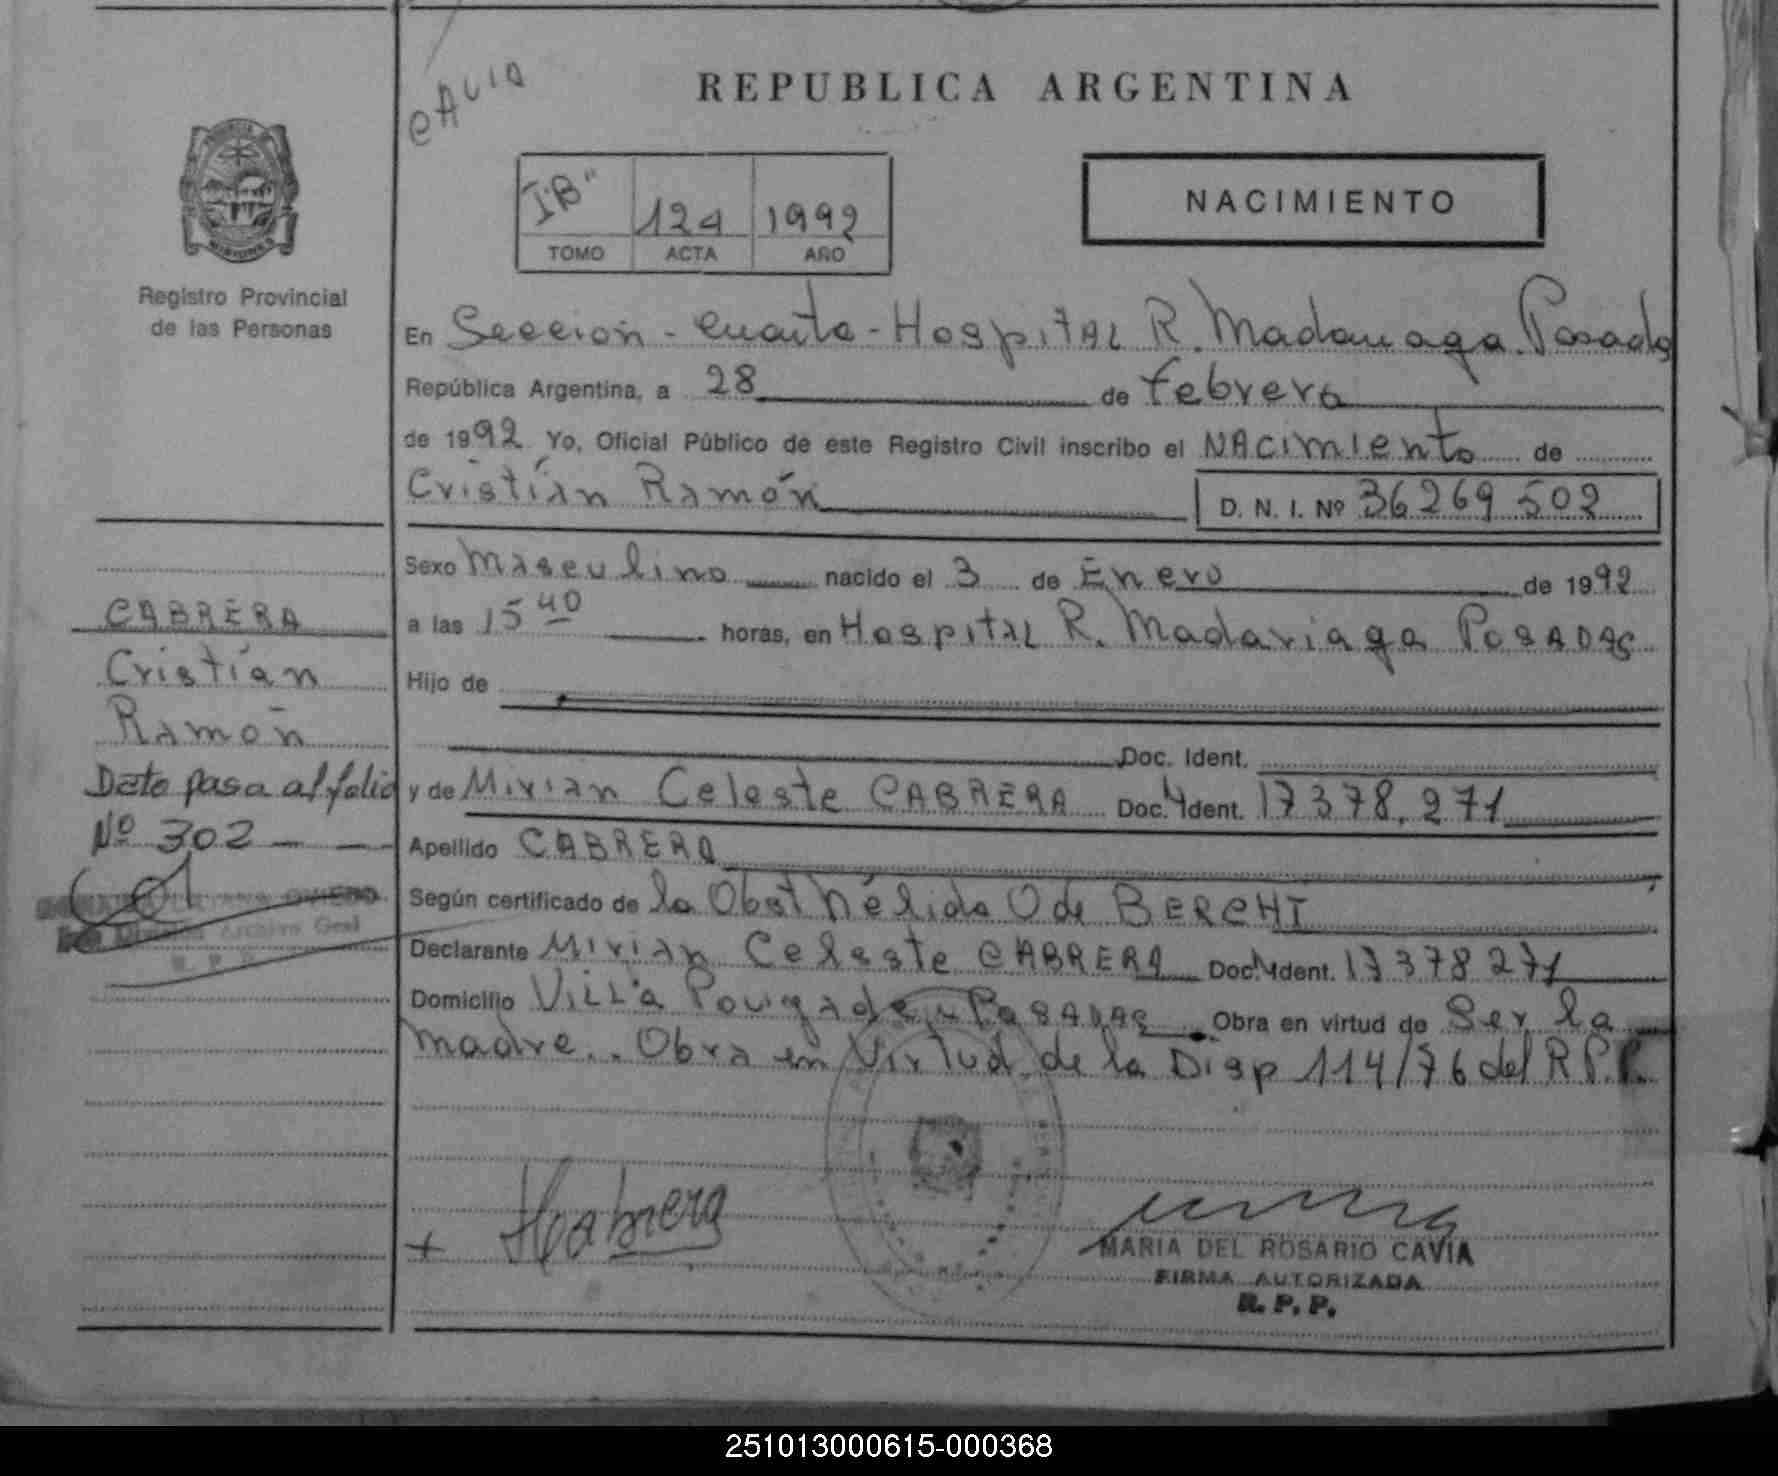 REPUBLICA ARGENTINA
I"B" 124 1992
TOMO ACTA AÑO
NACIMIENTO
Registro Provincial
de las Personas
En Sección - Cuarta - Hospital R. Madariaga. Posadas
República Argentina, a 28 de febrero
de 1992 Yo, Oficial Público de este Registro Civil inscribo el NACimiento de
Cristián Ramón D. N. I. Nº 36269502
Sexo Masculino nacido el 3 de Enero de 1992
a las 15 40 horas, en Hospital R. Madariaga POSADAS
Hijo de
Doc. Ident.
y de Mirian Celeste CABRERA Doc. Ident. 17378.271
Apellido CABRERA
Según certificado de la Obst Nélida O de BERCHI
Declarante Mirian Celeste CABRERA Doc. Ident. 17378271
Domicilio Villa Pougade POSADAS Obra en virtud de Ser la
madre.. Obra en Virtud de la Disp 114/76 del R.P.P.
CABRERA
Cristián
Ramón
Dato pasa al folio
Nº 302
OVIEDO
Archivo Gral
R. P. P.
Cabrera
MARIA DEL ROSARIO CAVIA
FIRMA AUTORIZADA
R. P. P.
251013000615-000368